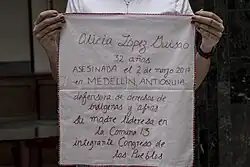 Alicia López Guisao
32 años
ASESINADA el 2 de marzo 2017
en MEDELLÍN, ANTIOQUIA
defensora de derechos de
indígenas y afros
su madre lideresa en
la Comuna 13
integrante Congreso de
los Pueblos